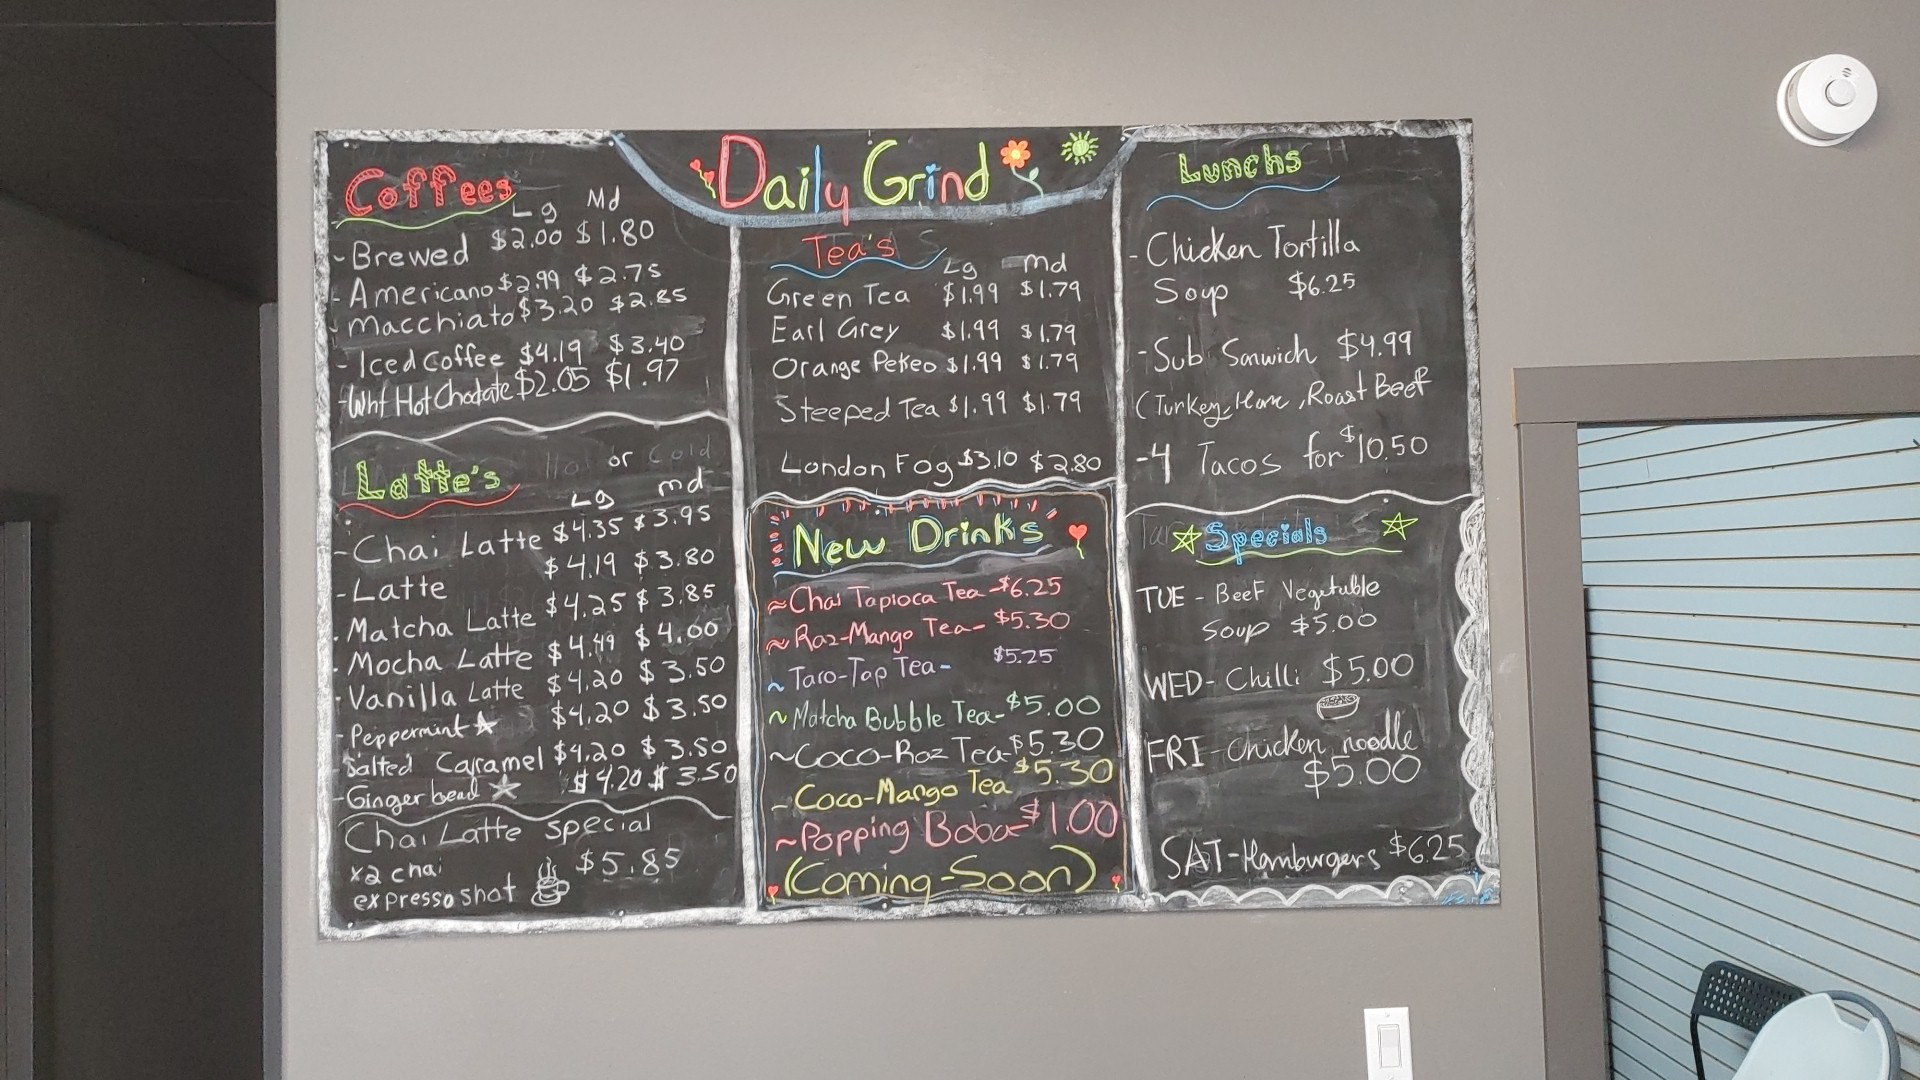 Daily Grind
Coffees
Lg Md
- Brewed $2.00 $1.80
- Americano $2.99 $2.75
- Macchiato $3.20 $2.85
- Iced Coffee $4.19 $3.40
- Wht Hot Choclate $2.05 $1.97
Latte's Hot or Cold
Lg md
- Chai Latte $4.35 $3.95
- Latte $4.19 $3.80
- Matcha Latte $4.25 $3.85
- Mocha Latte $4.49 $4.00
- Vanilla Latte $4.20 $3.50
- Peppermint $4.20 $3.50
- Salted Caramel $4.20 $3.50
- Ginger bead $4.20 $3.50
Chai Latte special
x2 chai $5.85
expresso shot
Tea's
Lg md
Green Tea $1.99 $1.79
Earl Grey $1.99 $1.79
Orange Pekeo $1.99 $1.79
Steeped Tea $1.99 $1.79
London Fog $3.10 $2.80
New Drinks
~ Chai Tapioca Tea - $6.25
~ Raz-Mango Tea - $5.30
~ Taro-Tap Tea - $5.25
~ Matcha Bubble Tea - $5.00
~ Coco-Raz Tea - $5.30
- Coco-Mango Tea $5.30
~ Popping Boba - $1.00
(Coming-Soon)
Lunchs
- Chicken Tortilla
Soup $6.25
- Sub Sanwich $4.99
(Turkey, Ham, Roast Beef
- 4 Tacos for $10.50
Specials
TUE - Beef Vegetable
Soup $5.00
WED - Chilli $5.00
FRI - Chicken noodle
$5.00
SAT - Hamburgers $6.25